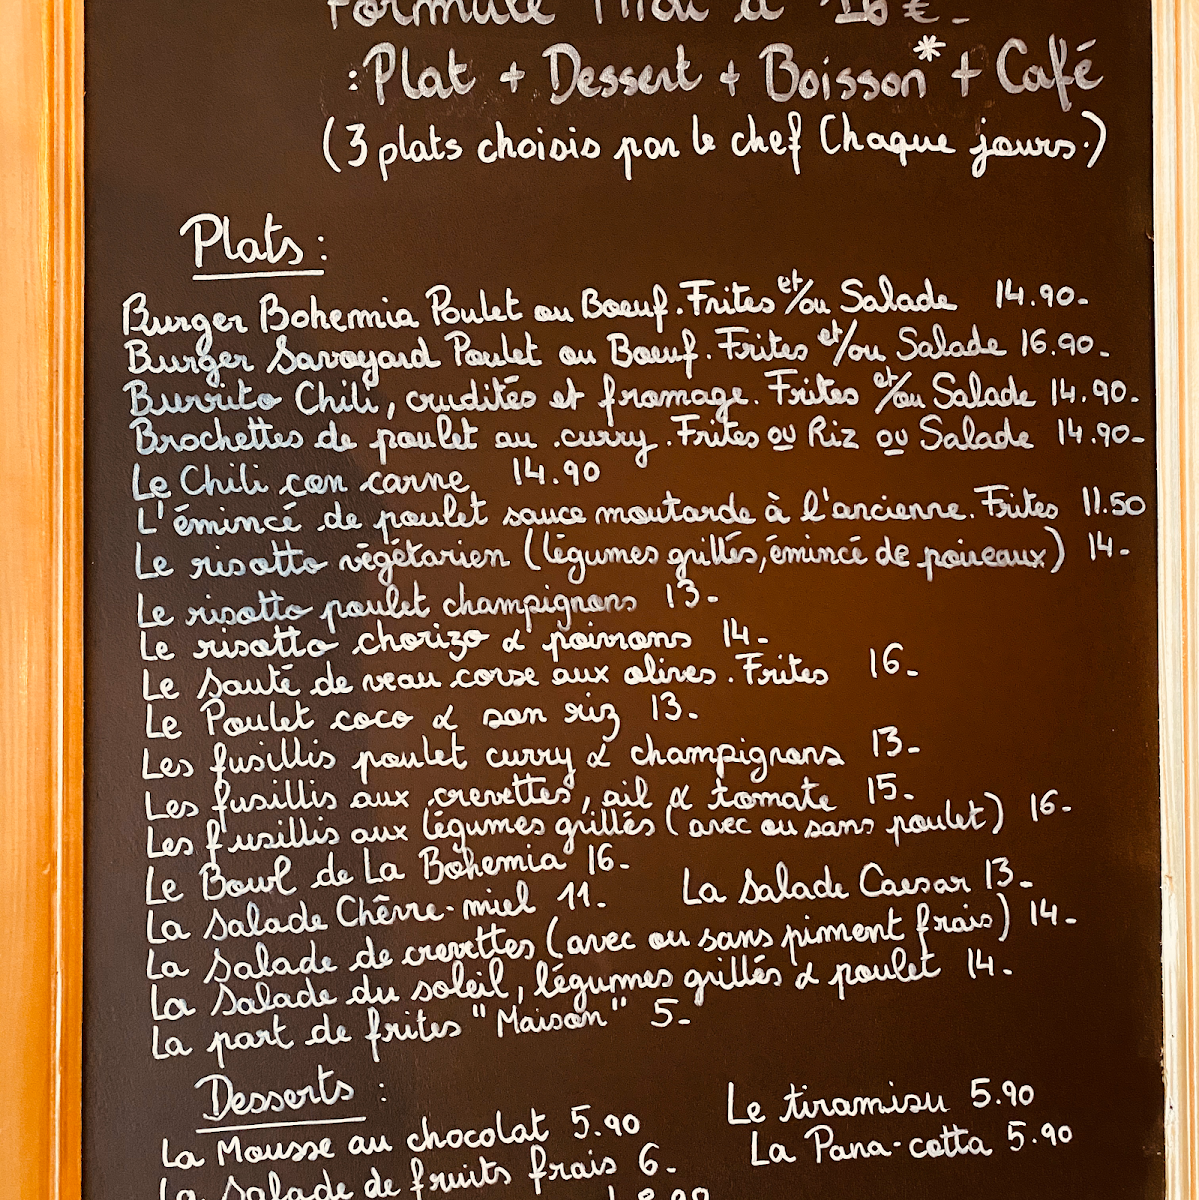 Formule Midi à 16 €.
: Plat + Dessert + Boisson* + Café
(3 plats choisis par le chef Chaque jours.)
Plats :
Burger Bohemia Poulet ou Boeuf. Frites et/ou Salade 14.90.
Burger Savoyard Poulet ou Boeuf. Frites et/ou Salade 16.90.
Burrito Chili, crudités et fromage. Frites et/ou Salade 14.90.
Brochettes de poulet au curry. Frites ou Riz ou Salade 14.90-
Le Chili con carne 14.90
L'émincé de poulet sauce moutarde à l'ancienne. Frites 11.50
Le risotto végétarien (légumes grillés, émincé de poireaux) 14-
Le risotto poulet champignons 13-
Le risotto chorizo & poivrons 14-
Le Sauté de veau corse aux olives. Frites 16-
Le Poulet coco & son riz 13.
Les fusillis poulet curry & champignons 13-
Les fusillis aux crevettes, ail & tomate 15-
Les fusillis aux légumes grillés (avec ou sans poulet) 16-
Le Bowl de La Bohemia 16-
La Salade Chêvre-miel 11. La Salade Caesar 13-
La Salade de crevettes (avec ou sans piment frais) 14-
La Salade du soleil, légumes grillés & poulet 14.
La part de frites "Maison" 5-
Desserts :
La Mousse au chocolat 5.90 Le tiramisu 5.90
La Salade de fruits frais 6- La Pana-cotta 5.90